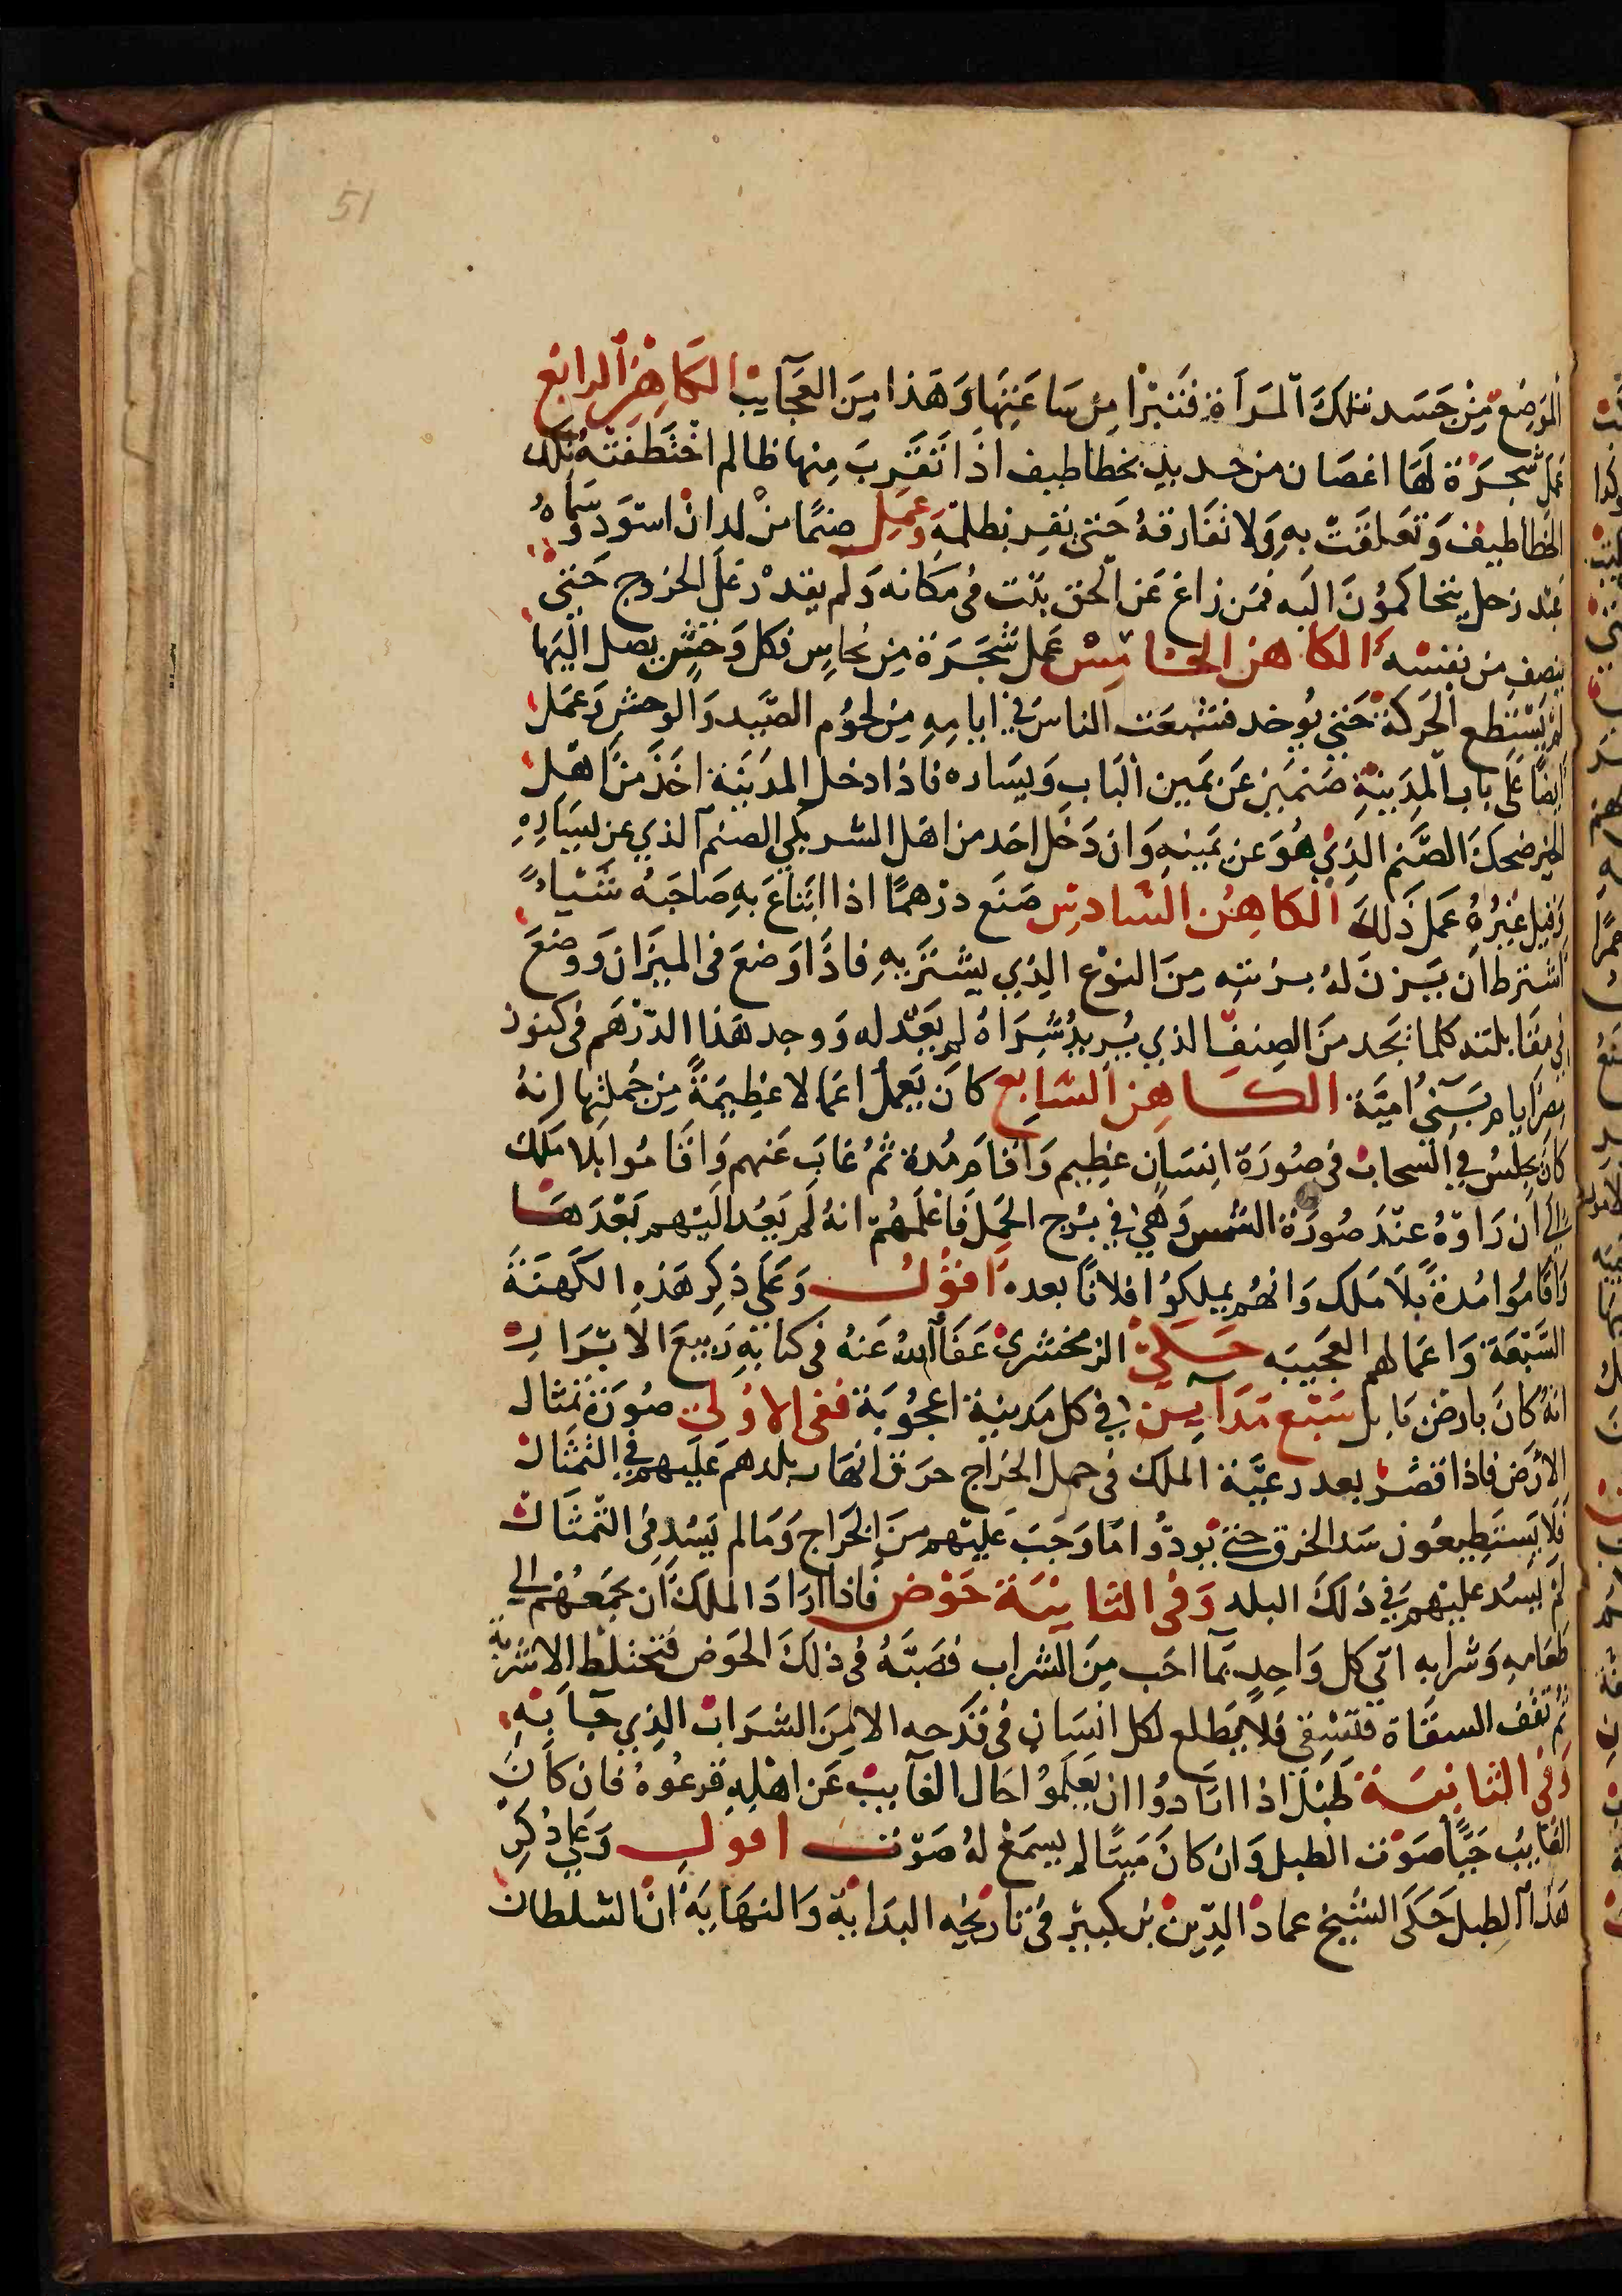 51
الموضع من جسد تلك المرأة فتبرا من ساعتها وهذا من العجايب الكاهن الرابع
عمل شجرة لها اغصان من حديد بخطاطيف اذا تقرب منها ظالم اختطفته تلك
الخطاطيف وتعلقت به ولا تفارقه حتى يقر بظلمه وعمل صنما من لدان اسود وسماه
عبد زحل يتحاكمون اليه فمن زاغ عن الحق بنت فى مكانه ولم يقدر على الخروج حتى
ينصف من نفسه الكاهن الخامس عمل شجرة من نحاس فكل وحش يصل اليها
لم يستطع الحركة حتى يوخد فشبعت الناس في ايامه من لحوم الصيد والوحش وعمل
ايضا على باب المدينة صنمين عن يمين الباب ويساره فاذا دخل المدينة احد من اهل
الخير ضحك الصنم الذي هو عن يمينه وان دخل احد من اهل الشر بكي الصنم الذي عن يساره
وقيل غيره عمل ذلك الكاهن السادس صنع درهما اذا ابتاع به صاحبه شيا
اشترط ان يزن له بزنته من النوع الذي يشتر به فاذا وضع فى الميزان ووضع
في مقابلته كلما نجد من الصنف الذي يريد شراه لم يعدله ووجد هذا الدرهم فى كنوز
مصر ايام بني امية الكاهن السابع كان يعمل اعمالا عظيمة من جملتها انه
كان يجلس في السحاب فى صورة انسان عظيم واقام مدة ثم غاب عنهم واقاموا بلا ملك
الي ان راوه عند صورة الشمس وهي في برج الحمل فاعلمهم انه لم يعد اليهم بعدها
واقاموا مدة بلا ملك وانهم يملكوا فلانا بعده اقول وعلى ذكر هذه الكهنة
السبعة واعمالهم العجيبه حكى الزمخشري عفا الله عنه فى كتابه ربيع الابرار
انه كان بارض بابل سبع مداين في كل مدينة اعجوبة ففى الاولى صورة تمثال
الارض فاذا قصر بعد رعية الملك فى حمل الخراج خرق انهار بلدهم عليهم فى التمثال
فلا يستطيعون سد الخرق حتى يودوا ما وجب عليهم من الخراج وما لم يسد فى التمثال
لم يسد عليهم في ذلك البلد وفى الثانية حوض فاذا اراد الملك ان يجمعهم الي
طعامه وشرابه اتي كل واحد بما احب من الشراب فصبه فى ذلك الحوض فتختلط الاشربة
ثم تقف السقاة فتسقي فلا يطلع لكل انسان فى قدحه الا من الشراب الذي جا به
وفى الثانيه طبل اذا ارادوا ان يعلموا حال الغايب عن اهله قرعوه فان كان
الغايب حيا صوت الطبل وان كان ميتا لم يسمع له صوت اقول وعلي ذكر
هذا الطبل حكى الشيخ عماد الدين بن كبير فى تاريخه البداية والنهاية ان السلطان